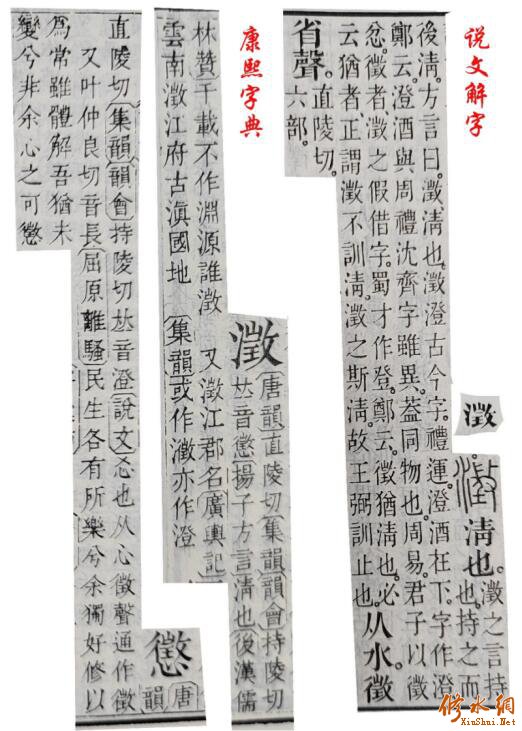 说文解字
澂
清也。澂之言持也。持之而
後淸。方言曰。澂淸也。澂澄古今字。禮運。澄酒在下。字作澄
鄭云。澄酒與周禮沈齊字雖異。葢同物也。周易。君子以徵
忿。徵者澂之假借字。蜀才作登。鄭云。徵猶淸也。必
云猶者。正謂澂不訓淸。澂之斯淸。故王弼訓止也。从水徵
省聲。直陵切。
六部。
康熙字典
澂
唐韻直陵切集韻韻會持陵切
𠀤音懲揚子方言淸也後漢儒
林贊千載不作淵源誰澂 又澂江郡名廣輿記
雲南澂江府古滇國地 集韻或作瀓亦作澄
懲
唐韻
直陵切集韻韻會持陵切𠀤音澄說文忞也从心徵聲通作徵
又叶仲良切音長屈原離騷民生各有所樂兮余獨好修以
爲常雖體解吾猶未
變兮非余心之可懲
修水網
XiuShui.Net